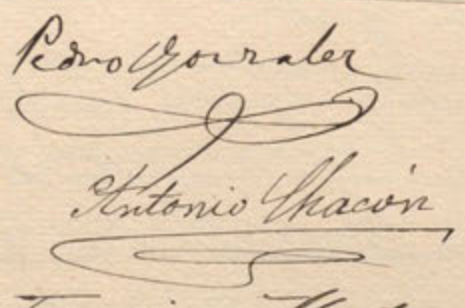 Pedro Gonzalez
Antonio Chacón